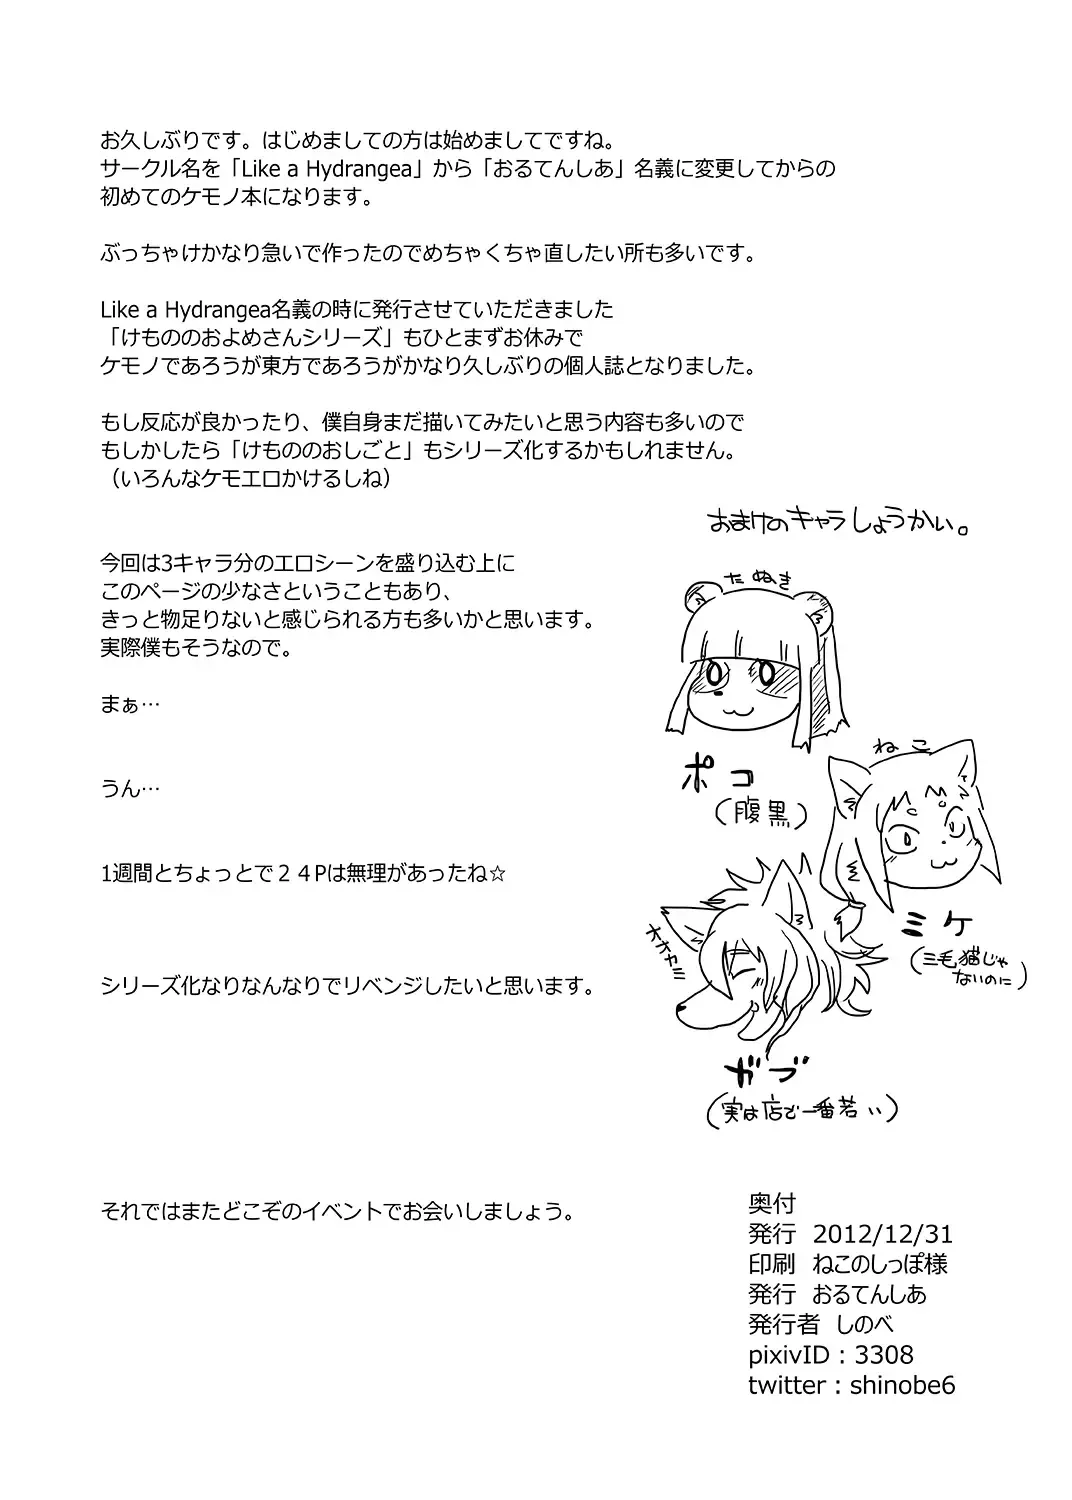 お久しぶりです。はじめましての方は始めましてですね。
サークル名を「Like a Hydrangea」から「おるてんしあ」名義に変更してからの
初めてのケモノ本になります。
ぶっちゃけかなり急いで作ったのでめちゃくちゃ直したい所も多いです。
Like a Hydrangea名義の時に発行させていただきました
「けもののおよめさんシリーズ」もひとまずお休みで
ケモノであろうが東方であろうがかなり久しぶりの個人誌となりました。
もし反応が良かったり、僕自身まだ描いてみたいと思う内容も多いので
もしかしたら「けもののおしごと」もシリーズ化するかもしれません。
（いろんなケモエロかけるしね）
今回は3キャラ分のエロシーンを盛り込む上に
このページの少なさということもあり、
きっと物足りないと感じられる方も多いかと思います。
実際僕もそうなので。
まぁ…
うん…
1週間とちょっとで２４Pは無理があったね☆
シリーズ化なりなんなりでリベンジしたいと思います。
それではまたどこぞのイベントでお会いしましょう。
おまけのキャラしょうかい。
たぬき
ポコ
(腹黒)
ねこ
ミケ
(三毛猫じゃ
ないのに)
オオカミ
ガブ
(実は店で一番若い)
奥付
発行 2012/12/31
印刷 ねこのしっぽ様
発行 おるてんしあ
発行者 しのべ
pixivID：3308
twitter：shinobe6